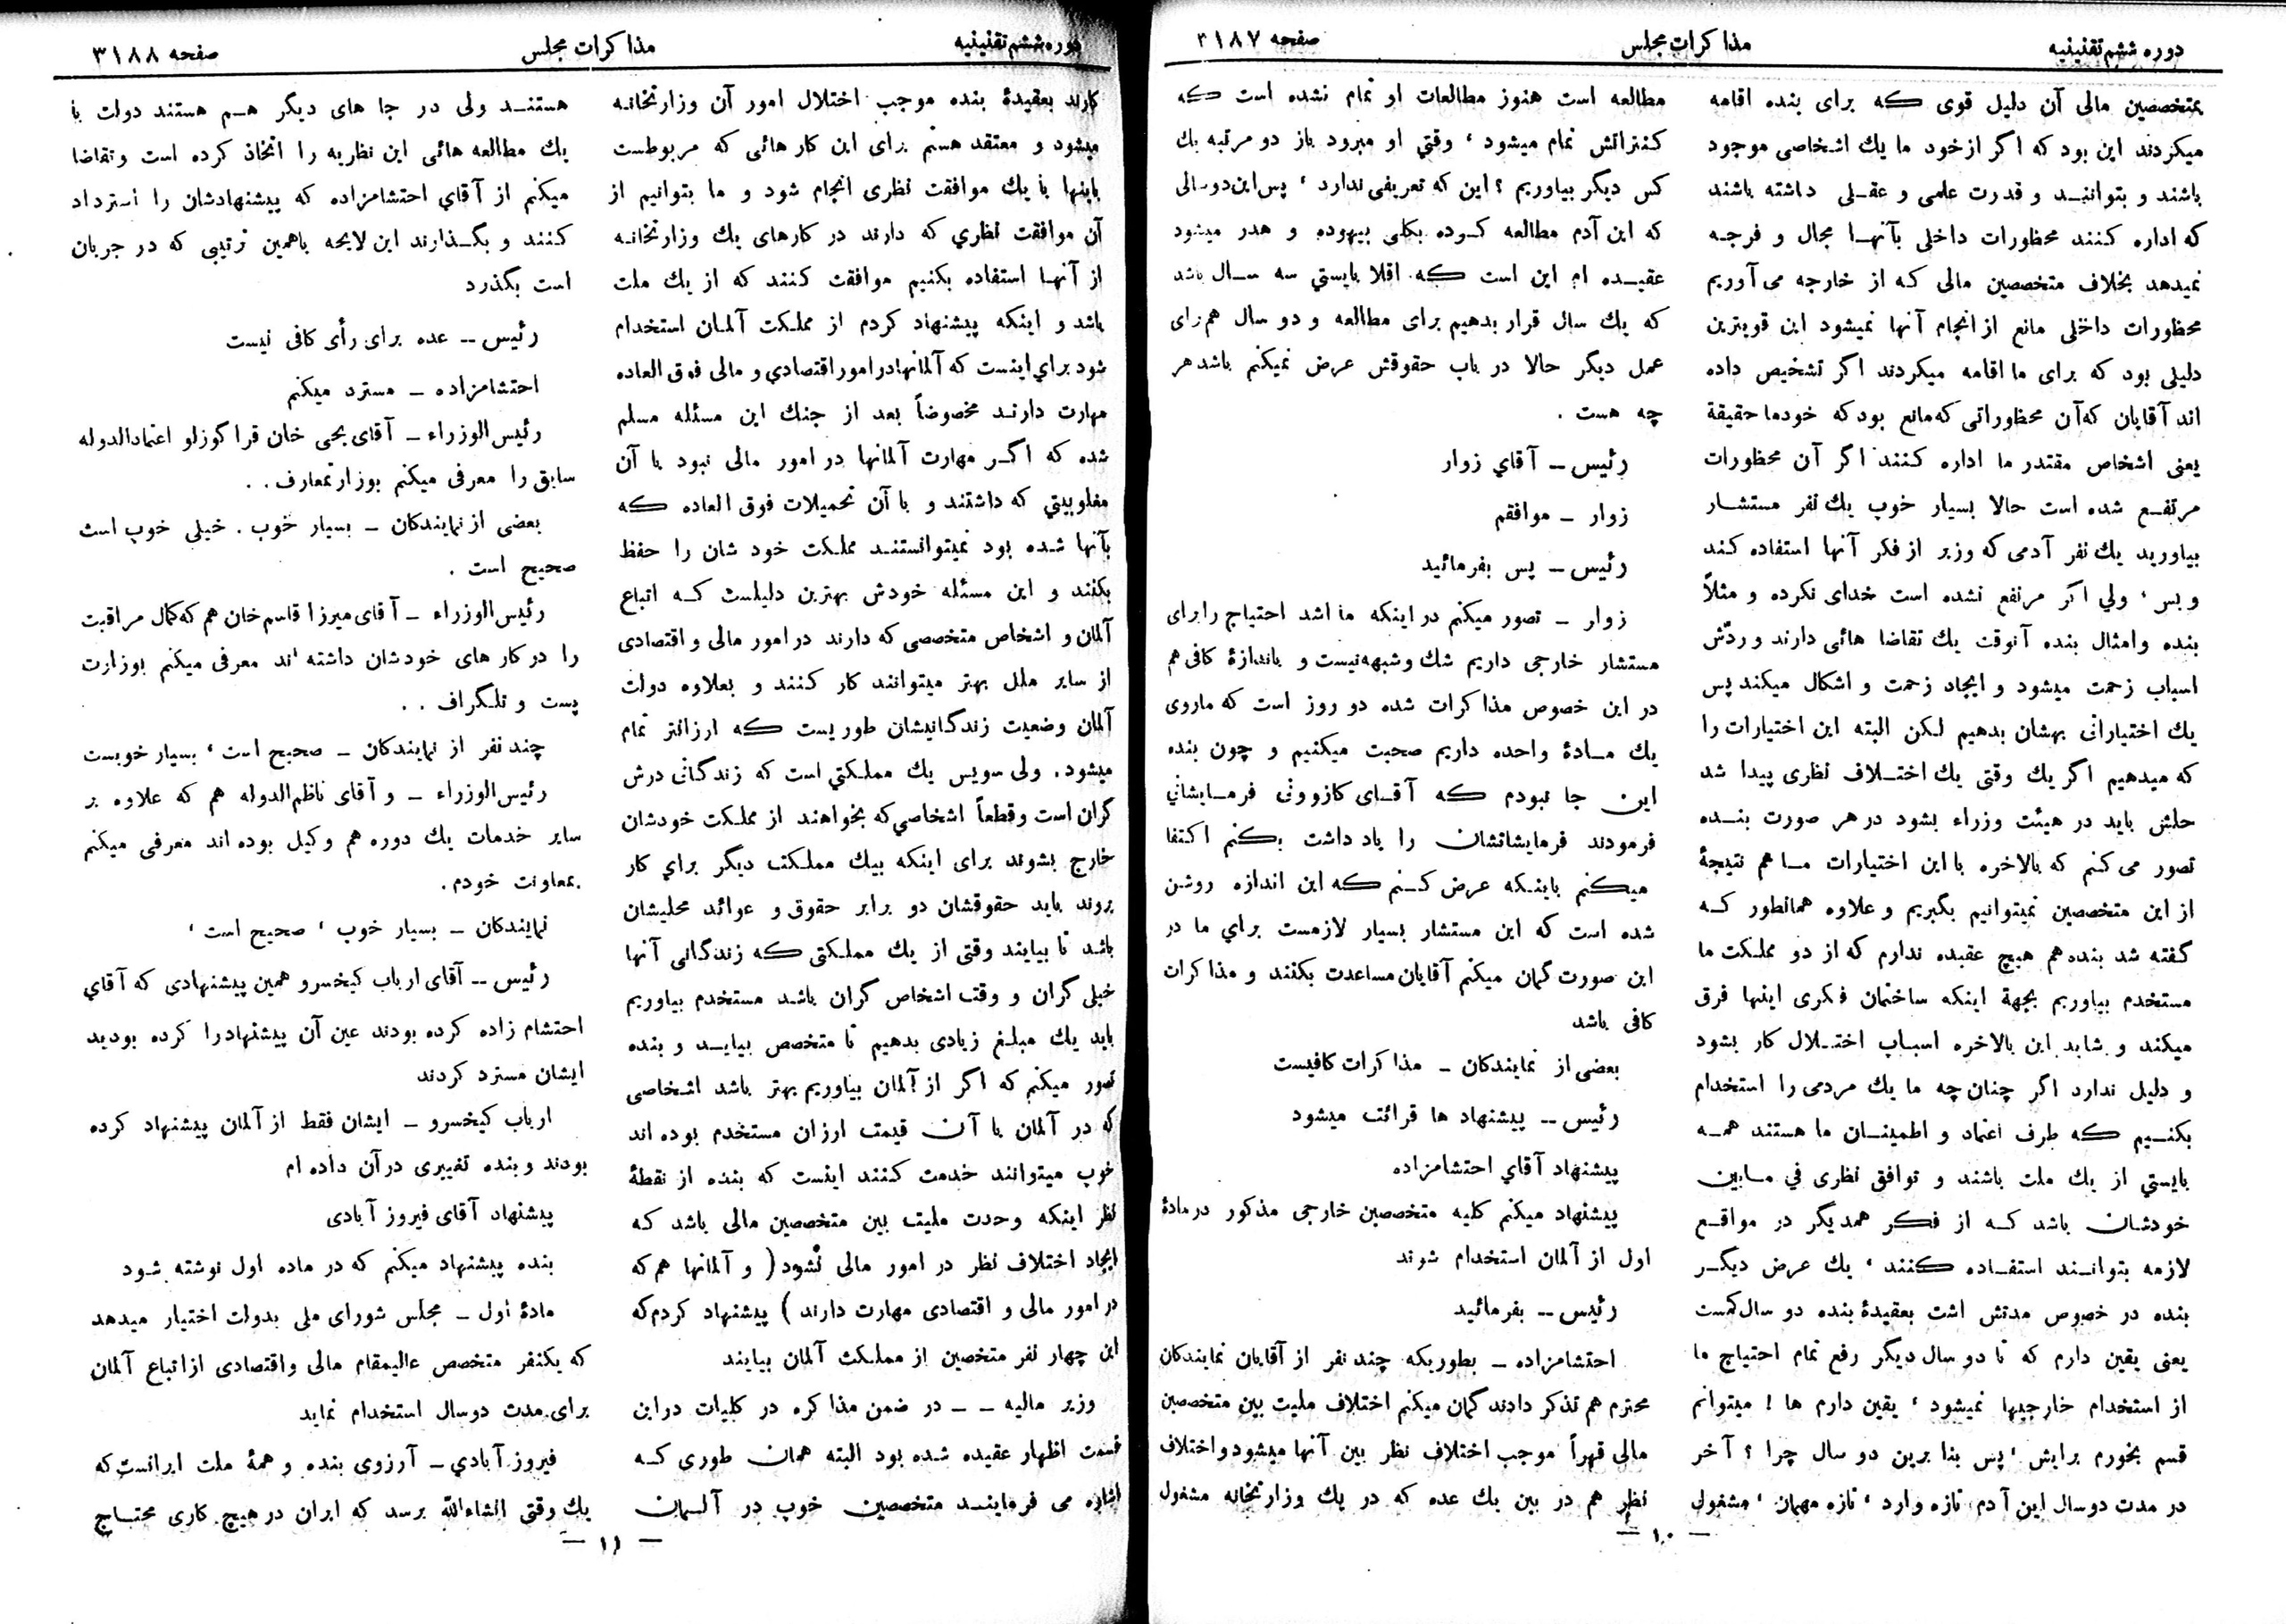 دوره ششم تقنینیه
مذاکرات مجلس
صفحه ۳۱۸۷
بمتخصصین مالی آن دلیل قوی که برای بنده اقامه
میکردند این بود که اگر از خود ما یك اشخاصی موجود
باشند و بتوانند و قدرت علمی و عقلی داشته باشند
که اداره کنند محظورات داخلی بآنها مجال و فرجه
نمیدهد بخلاف متخصصین مالی که از خارجه می آوریم
محظورات داخلی مانع از انجام آنها نمیشود این قویترین
دلیلی بود که برای ما اقامه میکردند اگر تشخیص داده
اند آقایان که آن محظوراتی که مانع بود که خود ما حقیقة
یعنی اشخاص مقتدر ما اداره کنند اگر آن محظورات
مرتفع شده است حالا بسیار خوب یك نفر مستشار
بیاورید یك نفر آدمی که وزیر از فکر آنها استفاده کند
و بس ، ولي اگر مرتفع نشده است خدای نکرده و مثلاً
بنده و امثال بنده آنوقت یك تقاضا هائی دارند و ردّش
اسباب زحمت میشود و ایجاد زحمت و اشکال میکند پس
یك اختیاراتی بهشان بدهیم لکن البته این اختیارات را
که میدهیم اگر یك وقتی یك اختلاف نظری پیدا شد
حلش باید در هیئت وزراء بشود در هر صورت بنده
تصور می کنم که بالاخره با این اختیارات ما هم نتیجۀ
از این متخصصین نمیتوانیم بگیریم و علاوه همانطور که
گفته شد بنده هم هیچ عقیده ندارم که از دو مملکت ما
مستخدم بیاوریم بجهة اینکه ساختمان فکری اینها فرق
میکند و شاید این بالاخره اسباب اختلال کار بشود
و دلیل ندارد اگر چنان چه ما یك مردمی را استخدام
بکنیم که طرف اعتماد و اطمینان ما هستند همه
بایستي از یك ملت باشند و توافق نظری في مابین
خودشان باشد که از فکر همدیگر در مواقع
لازمه بتوانند استفاده کنند ، یك عرض دیگر
بنده در خصوص مدتش است بعقیدۀ بنده دو سال کمست
یعنی یقین دارم که تا دو سال دیگر رفع تمام احتیاج ما
از استخدام خارجیها نمیشود ، یقین دارم ها ! میتوانم
قسم بخورم برایش ، پس بنا برین دو سال چرا ؟ آخر
در مدت دو سال این آدم تازه وارد ، تازه مهمان ، مشغول
مطالعه است هنوز مطالعات او تمام نشده است که
کنتراتش تمام میشود ، وقتي او میرود باز دو مرتبه یك
کس دیگر بیاوریم ؟ این که تعریفی ندارد ، پس این دو سالی
که این آدم مطالعه کرده بکلی بیهوده و هدر میشود
عقیده ام این است که اقلا بایستي سه سال باشد
که یك سال قرار بدهیم برای مطالعه و دو سال هم برای
عمل دیگر حالا در باب حقوقش عرض نمیکنم باشد هر
چه هست .
رئیس ــ آقاي زوار
زوار ــ موافقم
رئیس ــ پس بفرمائید
زوار ــ تصور میکنم در اینکه ما اشد احتیاج را برای
مستشار خارجی داریم شك و شبهه نیست و باندازۀ کافی هم
در این خصوص مذاکرات شده دو روز است که ما روی
یك مادۀ واحده داریم صحبت میکنیم و چون بنده
این جا نبودم که آقای کازرونی فرمایشاتي
فرمودند فرمایشاتشان را یاد داشت بکنم اکتفا
میکنم باینکه عرض کنم که این اندازه روشن
شده است که این مستشار بسیار لازمست براي ما در
این صورت گمان میکنم آقایان مساعدت بکنند و مذاکرات
کافی باشد
بعضی از نمایندکان ــ مذاکرات کافیست
رئیس ــ پیشنهاد ها قرائت میشود
پیشنهاد آقاي احتشامزاده
پیشنهاد میکنم کلیه متخصصین خارجی مذکور در مادۀ
اول از آلمان استخدام شوند
رئیس ــ بفرمائید
احتشامزاده ــ بطوریکه چند نفر از آقایان نمایندکان
محترم هم تذکر دادند گمان میکنم اختلاف ملیت بین متخصصین
مالی قهراً موجب اختلاف نظر بین آنها میشود و اختلاف
نظر هم در بین یك عده که در یك وزارتخانه مشغول
— ۱۰ —
دوره ششم تقنینیه
مذاکرات مجلس
صفحه ۳۱۸۸
کارند بعقیدۀ بنده موجب اختلال امور آن وزارتخانه
میشود و معتقد هستم برای این کار هائی که مربوطست
باینها با یك موافقت نظری انجام شود و ما بتوانیم از
آن موافقت نظري که دارند در کارهای یك وزارتخانه
از آنها استفاده بکنیم موافقت کنند که از یك ملت
باشد و اینکه پیشنهاد کردم از مملکت آلمان استخدام
شود براي اینست که آلمانها در امور اقتصادي و مالی فوق العاده
مهارت دارند مخصوصاً بعد از جنك این مسئله مسلم
شده که اگر مهارت آلمانها در امور مالی نبود با آن
مغلوبیتي که داشتند و با آن تحمیلات فوق العاده که
بآنها شده بود نمیتوانستند مملکت خود شان را حفظ
بکنند و این مسئله خودش بهترین دلیلست که اتباع
آلمان و اشخاص متخصصی که دارند در امور مالی و اقتصادی
از سایر ملل بهتر میتوانند کار کنند و بعلاوه دولت
آلمان وضعیت زندگانیشان طوریست که ارزانتر تمام
میشود . ولی سویس یك مملکتي است که زندگانی درش
گران است و قطعاً اشخاصي که بخواهند از مملکت خودشان
خارج بشوند برای اینکه بیك مملکت دیگر براي کار
بروند باید حقوقشان دو برابر حقوق و عوائد محلیشان
باشد تا بیایند وقتی از یك مملکتی که زندگانی آنها
خیلی گران و وقت اشخاص گران باشد مستخدم بیاوریم
باید یك مبلغ زیادی بدهیم تا متخصص بیاید و بنده
تصور میکنم که اگر از آلمان بیاوریم بهتر باشد اشخاصی
که در آلمان با آن قیمت ارزان مستخدم بوده اند
خوب میتوانند خدمت کنند اینست که بنده از نقطۀ
نظر اینکه وحدت ملیت بین متخصصین مالی باشد که
ایجاد اختلاف نظر در امور مالی نشود ( و آلمانها هم که
در امور مالی و اقتصادی مهارت دارند ) پیشنهاد کردم که
این چهار نفر متخصین از مملکت آلمان بیایند
وزیر مالیه ــ ــ در ضمن مذاکره در کلیات در این
قسمت اظهار عقیده شده بود البته همان طوری که
اشاره می فرمایند متخصصین خوب در آلمان
هستند ولی در جا های دیگر هم هستند دولت با
یك مطالعه هائی این نظریه را اتخاذ کرده است و تقاضا
میکنم از آقاي احتشامزاده که پیشنهادشان را استرداد
کنند و بگذارند این لایحه باهمین ترتیبی که در جریان
است بگذرد
رئیس ــ عده برای رأی کافی نیست
احتشامزاده ــ مسترد میکنم
رئیس الوزراء ــ آقای یحی خان قراگوزلو اعتمادالدوله
سابق را معرفی میکنم بوزارتمعارف . .
بعضی از نمایندکان ــ بسیار خوب . خیلی خوب است
صحیح است .
رئیس الوزراء ــ آقای میرزا قاسم خان هم که کمال مراقبت
را در کار های خودشان داشته اند معرفی میکنم بوزارت
پست و تلگراف . .
چند نفر از نمایندکان ــ صحیح است ، بسیار خوبست
رئیس الوزراء ــ و آقای ناظم الدوله هم که علاوه بر
سایر خدمات یك دوره هم وکیل بوده اند معرفی میکنم
بمعاونت خودم .
نمایندکان ــ بسیار خوب ، صحیح است ،
رئیس ــ آقای ارباب کیخسرو همین پیشنهادی که آقای
احتشام زاده کرده بودند عین آن پیشنهاد را کرده بودید
ایشان مسترد کردند
ارباب کیخسرو ــ ایشان فقط از آلمان پیشنهاد کرده
بودند و بنده تغییری در آن داده ام
پیشنهاد آقای فیروز آبادی
بنده پیشنهاد میکنم که در ماده اول نوشته شود
مادۀ اول ــ مجلس شورای ملی بدولت اختیار میدهد
که یکنفر متخصص عالیمقام مالی و اقتصادی از اتباع آلمان
برای مدت دو سال استخدام نماید
فیروز آبادي ــ آرزوی بنده و همۀ ملت ایرانست که
یك وقتی انشاءالله برسد که ایران در هیچ کاری محتاج
— ۱۱ —